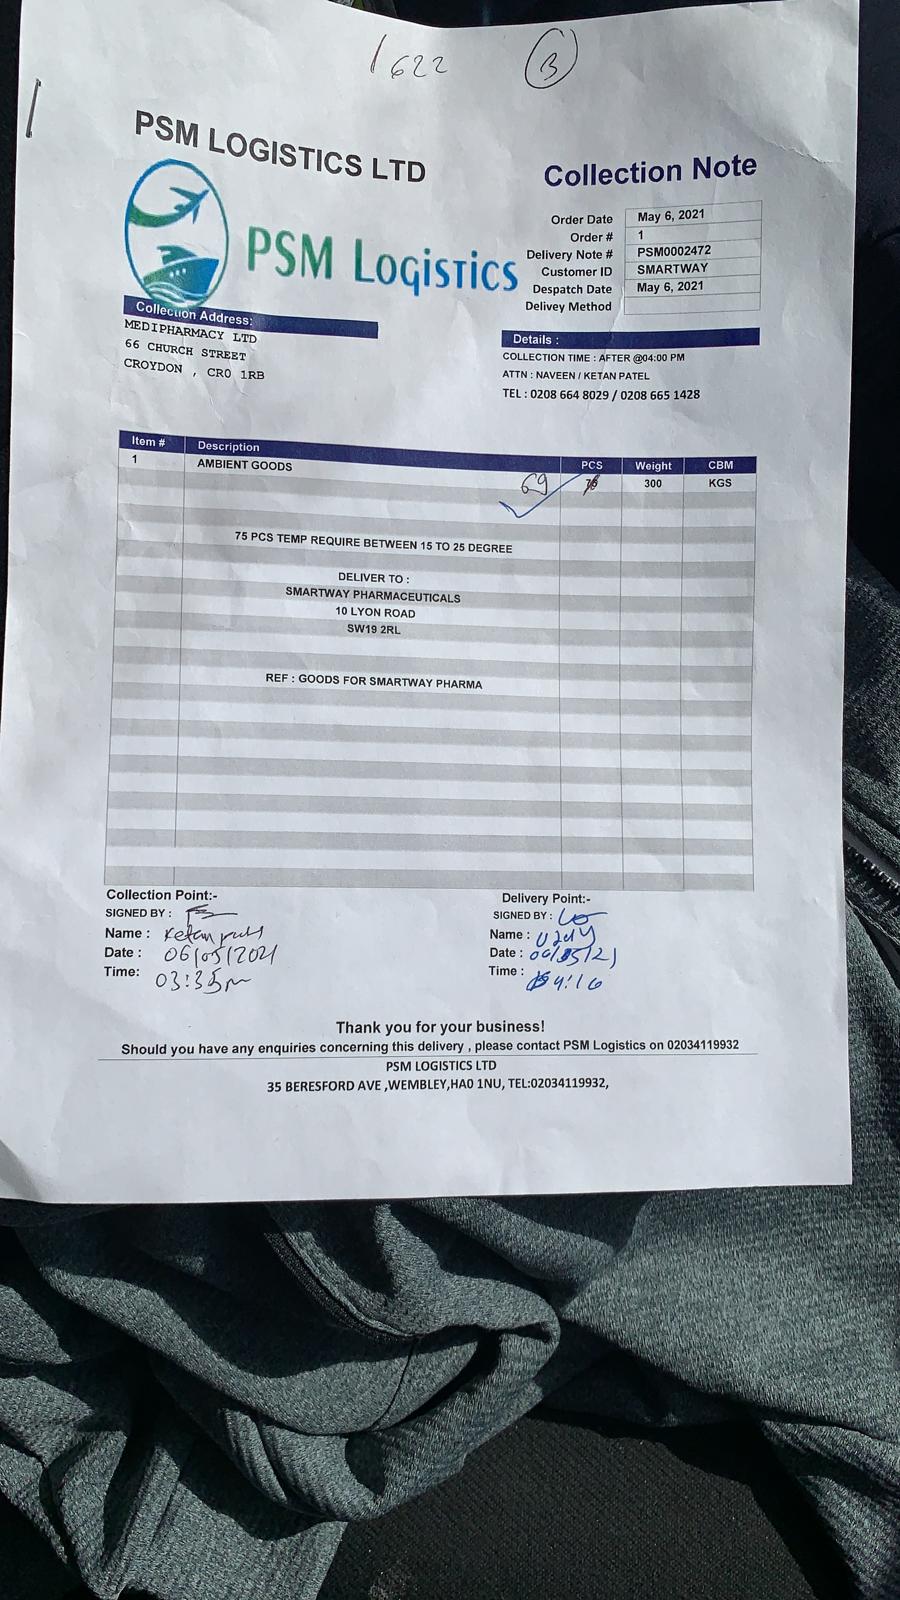 1622 B
PSM LOGISTICS LTD
PSM Logistics
Collection Note
Order Date May 6, 2021
Order # 1
Delivery Note # PSM0002472
Customer ID SMARTWAY
Despatch Date May 6, 2021
Delivey Method
Collection Address:
MEDIPHARMACY LTD
66 CHURCH STREET
CROYDON , CR0 1RB
Details :
COLLECTION TIME : AFTER @04:00 PM
ATTN : NAVEEN / KETAN PATEL
TEL : 0208 664 8029 / 0208 665 1428
Item # Description PCS Weight CBM
1 AMBIENT GOODS 69 300 KGS
75 PCS TEMP REQUIRE BETWEEN 15 TO 25 DEGREE
DELIVER TO :
SMARTWAY PHARMACEUTICALS
10 LYON ROAD
SW19 2RL
REF : GOODS FOR SMARTWAY PHARMA
Collection Point:-
SIGNED BY :
Name : Ketan
Date : 06/05/2021
Time: 03:35pm
Delivery Point:-
SIGNED BY :
Name :
Date : 06/05/21
Time : 4:16
Thank you for your business!
Should you have any enquiries concerning this delivery , please contact PSM Logistics on 02034119932
PSM LOGISTICS LTD
35 BERESFORD AVE ,WEMBLEY,HA0 1NU, TEL:02034119932,